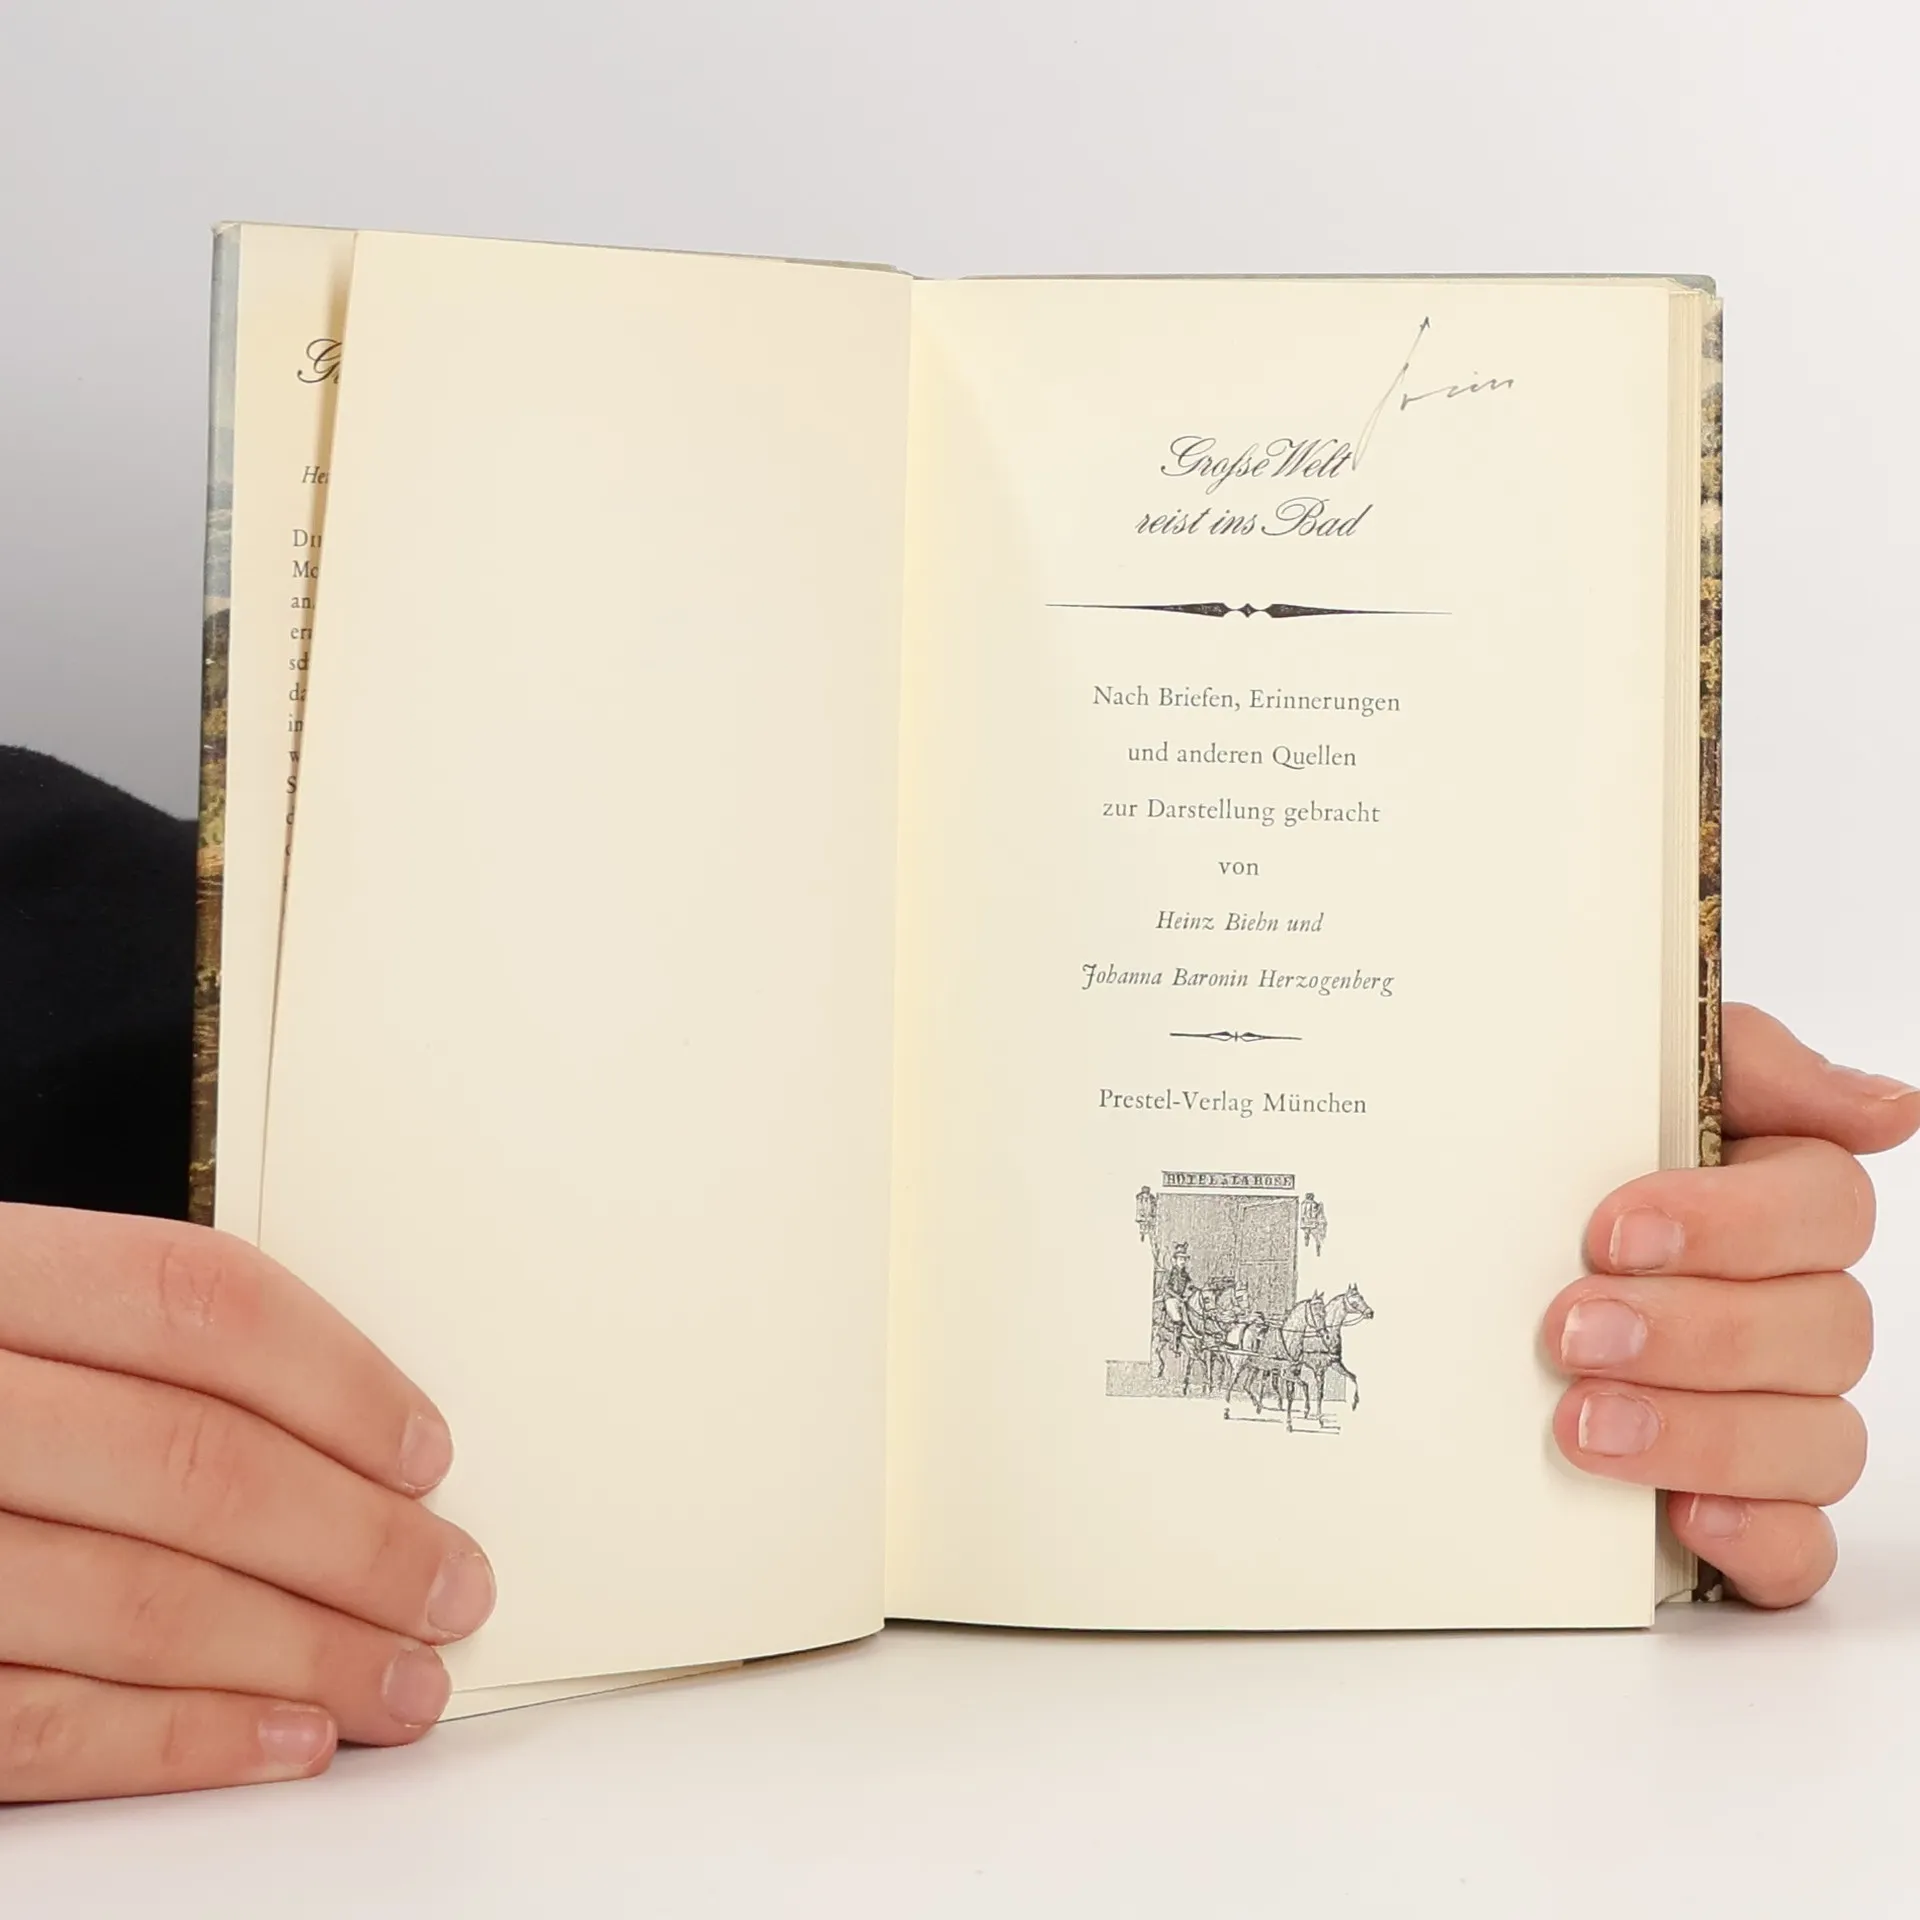 Große Welt
reist ins Bad
Nach Briefen, Erinnerungen
und anderen Quellen
zur Darstellung gebracht
von
Heinz Biehn und
Johanna Baronin Herzogenberg
Prestel-Verlag München
HOTEL à LA ROSE